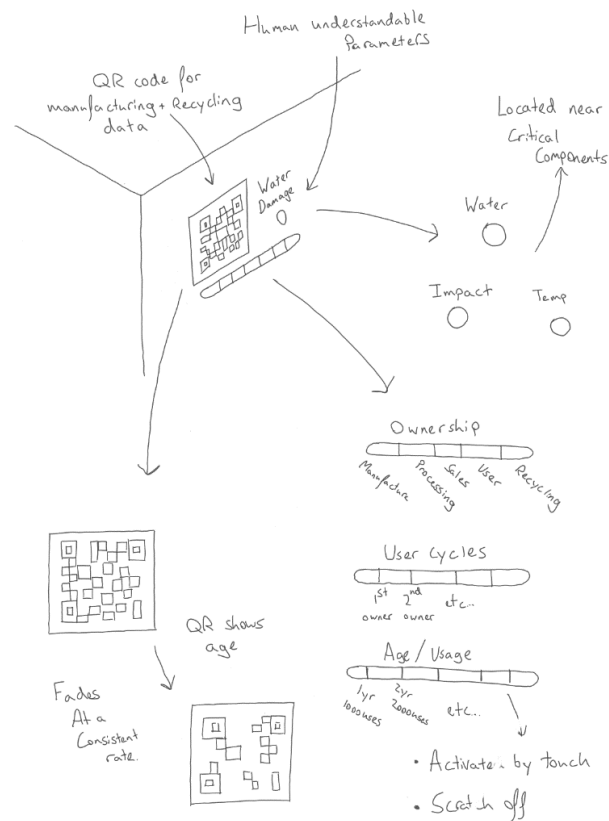 Human understandable
Parameters
QR code for
manufacturing + Recycling
data
Located near
Critical
Components
Water
Damage
Water
Impact
Temp
Ownership
Manufacture
Processing
Sales
User
Recycling
User Cycles
1st
owner
2nd
owner
etc...
QR shows
age
Age / Usage
1yr
1000uses
2yr
2000uses
etc...
Fades
At a
Consistent
rate.
• Activate by touch
• Scratch off